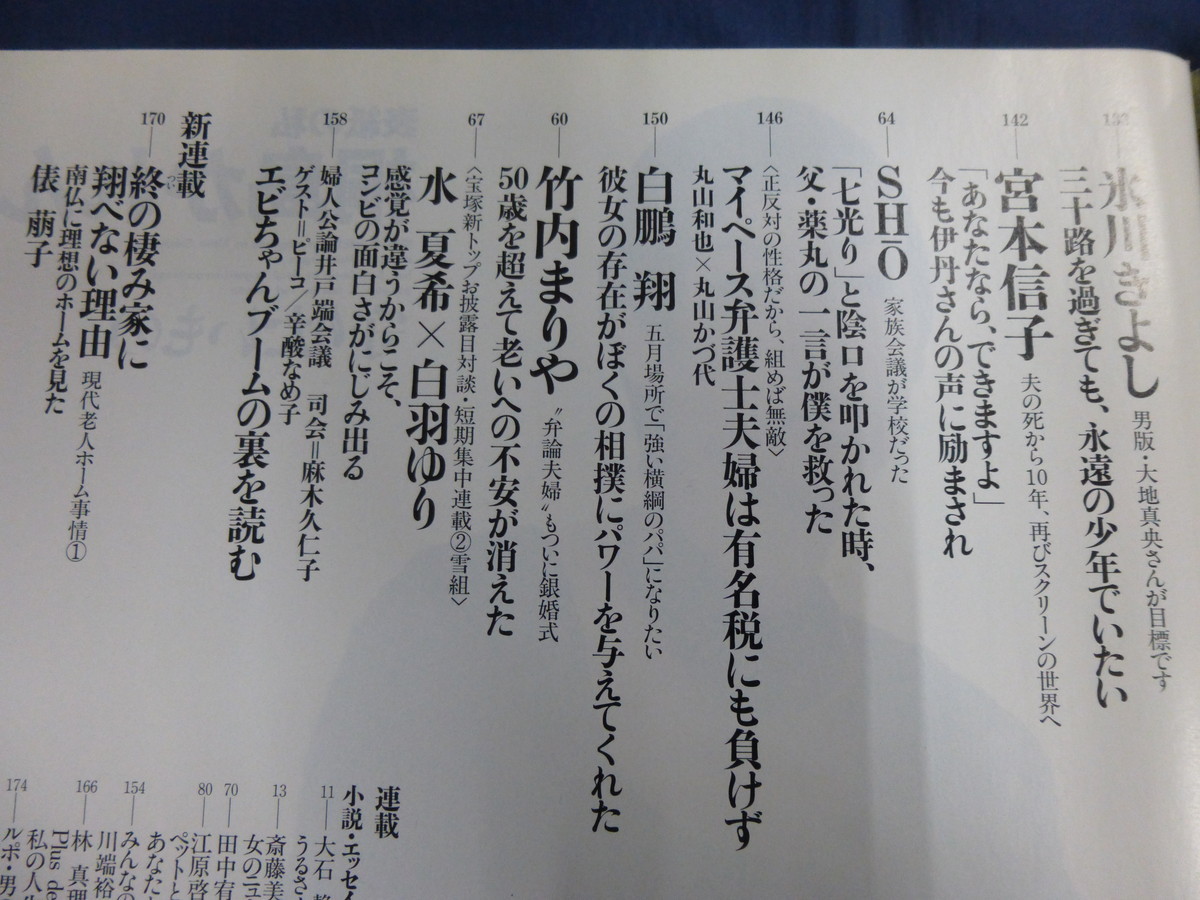 氷川きよし 男版・大地真央さんが目標です
三十路を過ぎても、永遠の少年でいたい
142
宮本信子 夫の死から10年、再びスクリーンの世界へ
「あなたなら、できますよ」
今も伊丹さんの声に励まされ
64
SHŌ 家族会議が学校だった
「七光り」と陰口を叩かれた時、
父・薬丸の一言が僕を救った
146
〈正反対の性格だから、組めば無敵〉
マイペース弁護士夫婦は有名税にも負けず
丸山和也×丸山かづ代
150
白鵬 翔 五月場所で「強い横綱のパパ」になりたい
彼女の存在がぼくの相撲にパワーを与えてくれた
60
竹内まりや “弁論夫婦”もついに銀婚式
50歳を超えて老いへの不安が消えた
67
〈宝塚新トップお披露目対談・短期集中連載②雪組〉
水 夏希×白羽ゆり
感覚が違うからこそ、
コンビの面白さがにじみ出る
158
婦人公論井戸端会議 司会＝麻木久仁子
ゲスト＝ピーコ／辛酸なめ子
エビちゃんブームの裏を読む
新連載
170
終の棲み家に
つい
翔べない理由 現代老人ホーム事情①
南仏に理想のホームを見た
俵 萠子
連載
小説・エッセイ
11
大石
うるさ
13
斎藤美
女のニュ
70
田中宥
80
江原啓
ペットと
あなた
154
みんなの
川端裕
166
林 真理
Plus de
私の人
174
ルポ・男